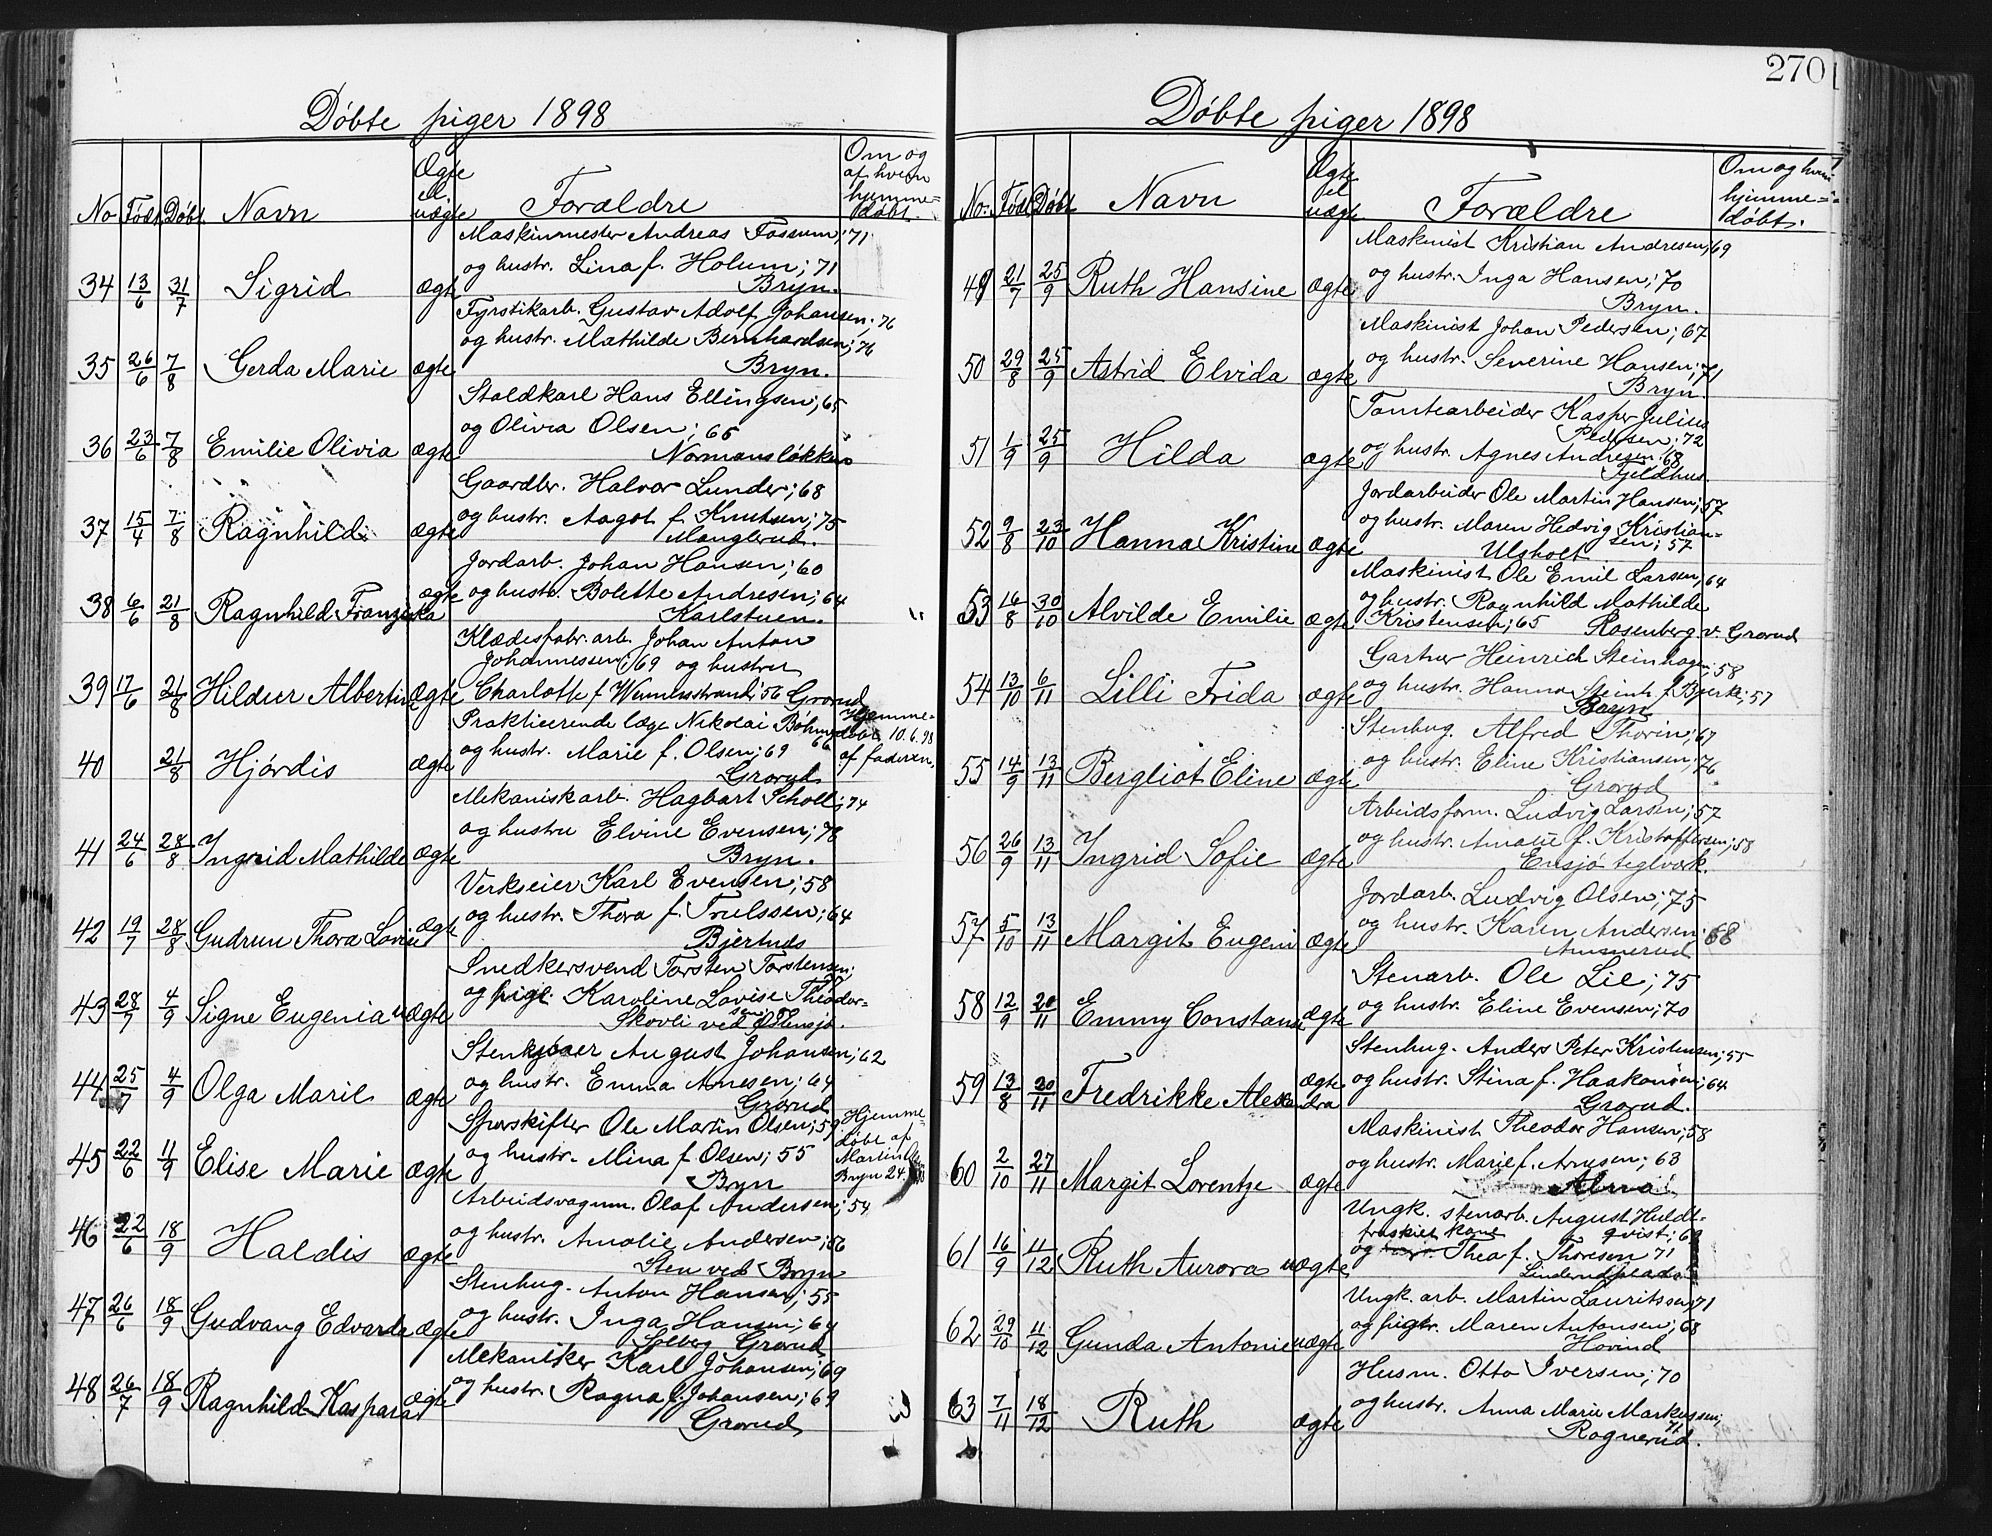 270
Døbte piger 1898
No Født Døbt Navn Ægte el. uægte Forældre Om og af hvem hjemme= døbt.
Maskinmester Andreas Fossum; 71
og hustr. Lina f. Holum; 71
34 13/6 31/7 Sigrid ægte Bryn.
Fyrstikarb. Gustav Adolf Johansen. 76
og hustr. Mathilde Bernhardsen; 76
35 26/6 7/8 Gerda Marie ægte Bryn.
Staldkarl Hans Ellingsen; 65
og Olivia Olsen; 65
36 23/6 7/8 Emilie Olivia ægte Normansløkken
Gaardbr. Halvor Lunder; 68
og hustr. Aagot f. Knutsen; 75
37 15/4 7/8 Ragnhild ægte Manglerud.
Jordarb. Johan Hansen; 60
og hustr. Bolette Andresen; 64
38 6/6 21/8 Ragnhild Franziska ægte Karlstuen. "
Klædesfabr. arb. Johan Anton
Johannessen; 69 og hustru
39 17/6 21/8 Hildur Albertine Ægte Charlotte f 56 Grorud
Prakticerende læge Nikolai Bøhmer 66 Hjemme=
og hustr. Marie f. Olsen; 69 døbt 10.6.98
40 21/8 Hjørdis ægte Grorud af faderen.
Mekanisk arb. Hagbart Scholl; 74
og hustru Elvine Evensen; 78
41 24/6 28/8 Ingrid Mathilde ægte Bryn.
Verkseier Karl Evensen; 58
og hustr. Thora f. Trulssen; 64
42 19/7 28/8 Gudrun Thora Lovise ægte Bjertnds
Snedkersvend Torsten Torstensen;
og pige. Karoline Lovise Theodor=
43 28/7 4/9 Signe Eugenia uægte Skovli ved Østensjø.
Stenkjører August Johansen; 62
og hustr. Emma Arnesen; 64
44 25/7 4/9 Olga Marie ægte Grorud
Sporskifter Ole Martin Olsen; 59 Hjemme=
og hustr. Mina f. Olsen; 55 døbt af
45 22/6 11/9 Elise Marie ægte Bryn Martin Bryn 24.
Arbeidsvagnm. Olaf Andersen; 54
og hustr. Amalie Andersen; 56
46 22/6 18/9 Haldis ægte Sten ved Bryn
Stenhug. Anton Hansen; 55
og hustr. Inga Hansen; 64
47 26/6 18/9 Gudvang Edvarda ægte Solberg Grorud
Mekaniker Karl Johansen; 69
og hustr. Ragna f. Johansen; 69
48 26/7 18/9 Ragnhild Kaspara ægte Grorud
Døbte piger 1898
No. Født Døbt Navn Ægte el uægte Forældre Om og hvem hjemme= døbt.
Maskinist Kristian Andresen; 69
og hustr. Inga Hansen; 70
49 21/7 25/9 Ruth Hansine ægte Bryn.
Maskinist Johan Pedersen; 67
og hustr. Severine Hansen; 71
50 29/8 25/9 Astrid Elvida ægte Bryn.
Tomtearbeider Kasper Julius
Pedersen; 72
og hustr. Agnes Andresen; 68
51 1/9 25/9 Hilda ægte Fjeldhus.
Jordarbeider Ole Martin Hansen; 57
og hustr. Maren Hedvig Kristian=
sen; 57
52 9/8 23/10 Hanna Kristine ægte Ulsholt
Maskinist Ole Emil Larsen; 64
og hustr. Ragnhild Mathilde
53 16/8 30/10 Alvilde Emilie ægte Kristensen; 65 Rosenberg v. Grorud
Gartner Heinrich Steinhagen; 58
og hustr. Hanna Steinh. f. Bjerke; 57
54 13/10 6/11 Lilli Frida ægte Bryn
Stenhug. Alfred Thorin; 67
og hustr. Eline Kristiansen; 76
55 14/9 13/11 Bergliot Eline ægte Grorud
Arbeidsform. Ludvig Larsen; 57
og hustr. Amalie f. Kristoffersen; 58
56 26/9 13/11 Ingrid Sofie ægte Ensjø teglværk.
Jordarb. Ludvig Olsen; 75
og hustr. Karen Andersen. 68
57 5/10 13/11 Margit Eugeni ægte Ammerud
Stenarb. Ole Lie; 75
og hustr. Eline Evensen; 70
58 12/9 20/11 Emmy Constanse ægte
Stenhug. Anders Peter Kristensen; 55
og hustr. Stina f. Haakonsen; 64
59 13/8 20/11 Fredrikke Alexandra ægte Grorud.
Maskinist Theodor Hansen; 58
og hustr. Marie f. Arnesen; 63
60 2/10 27/11 Margit Lorentze ægte Alna
Ungk. stenarb. August Huldt=
qvist; 69
fraskilt kone
og Thea f. Thoresen 71
61 16/9 11/12 Ruth Aurora uægte
Ungk. arb. Martin Lauritssen 71
og pige. Maren Antonsen; 68
62 29/10 11/12 Gunda Antonie uægte Hovind
Husm. Otto Iversen; 70
og hustr. Anna Marie Markussen;
71
63 7/11 18/12 Ruth ægte Rognerud.